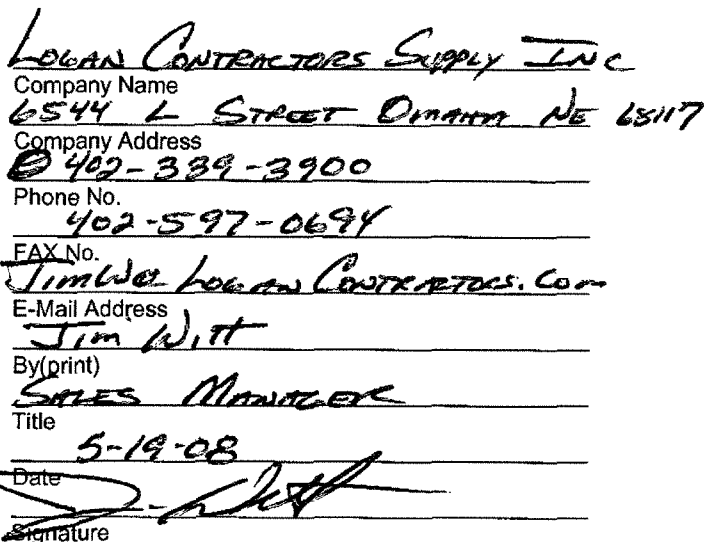 LOGAN CONTRACTORS SUPPLY INC
Company Name
6544 L STREET OMAHA NE 68117
Company Address
402-339-3900
Phone No.
402-597-0694
FAX No.
JIMW@LOGAN CONTRACTORS.COM
E-Mail Address
JIM WITT
By(print)
SALES MANAGER
Title
5-19-08
Date
Signature